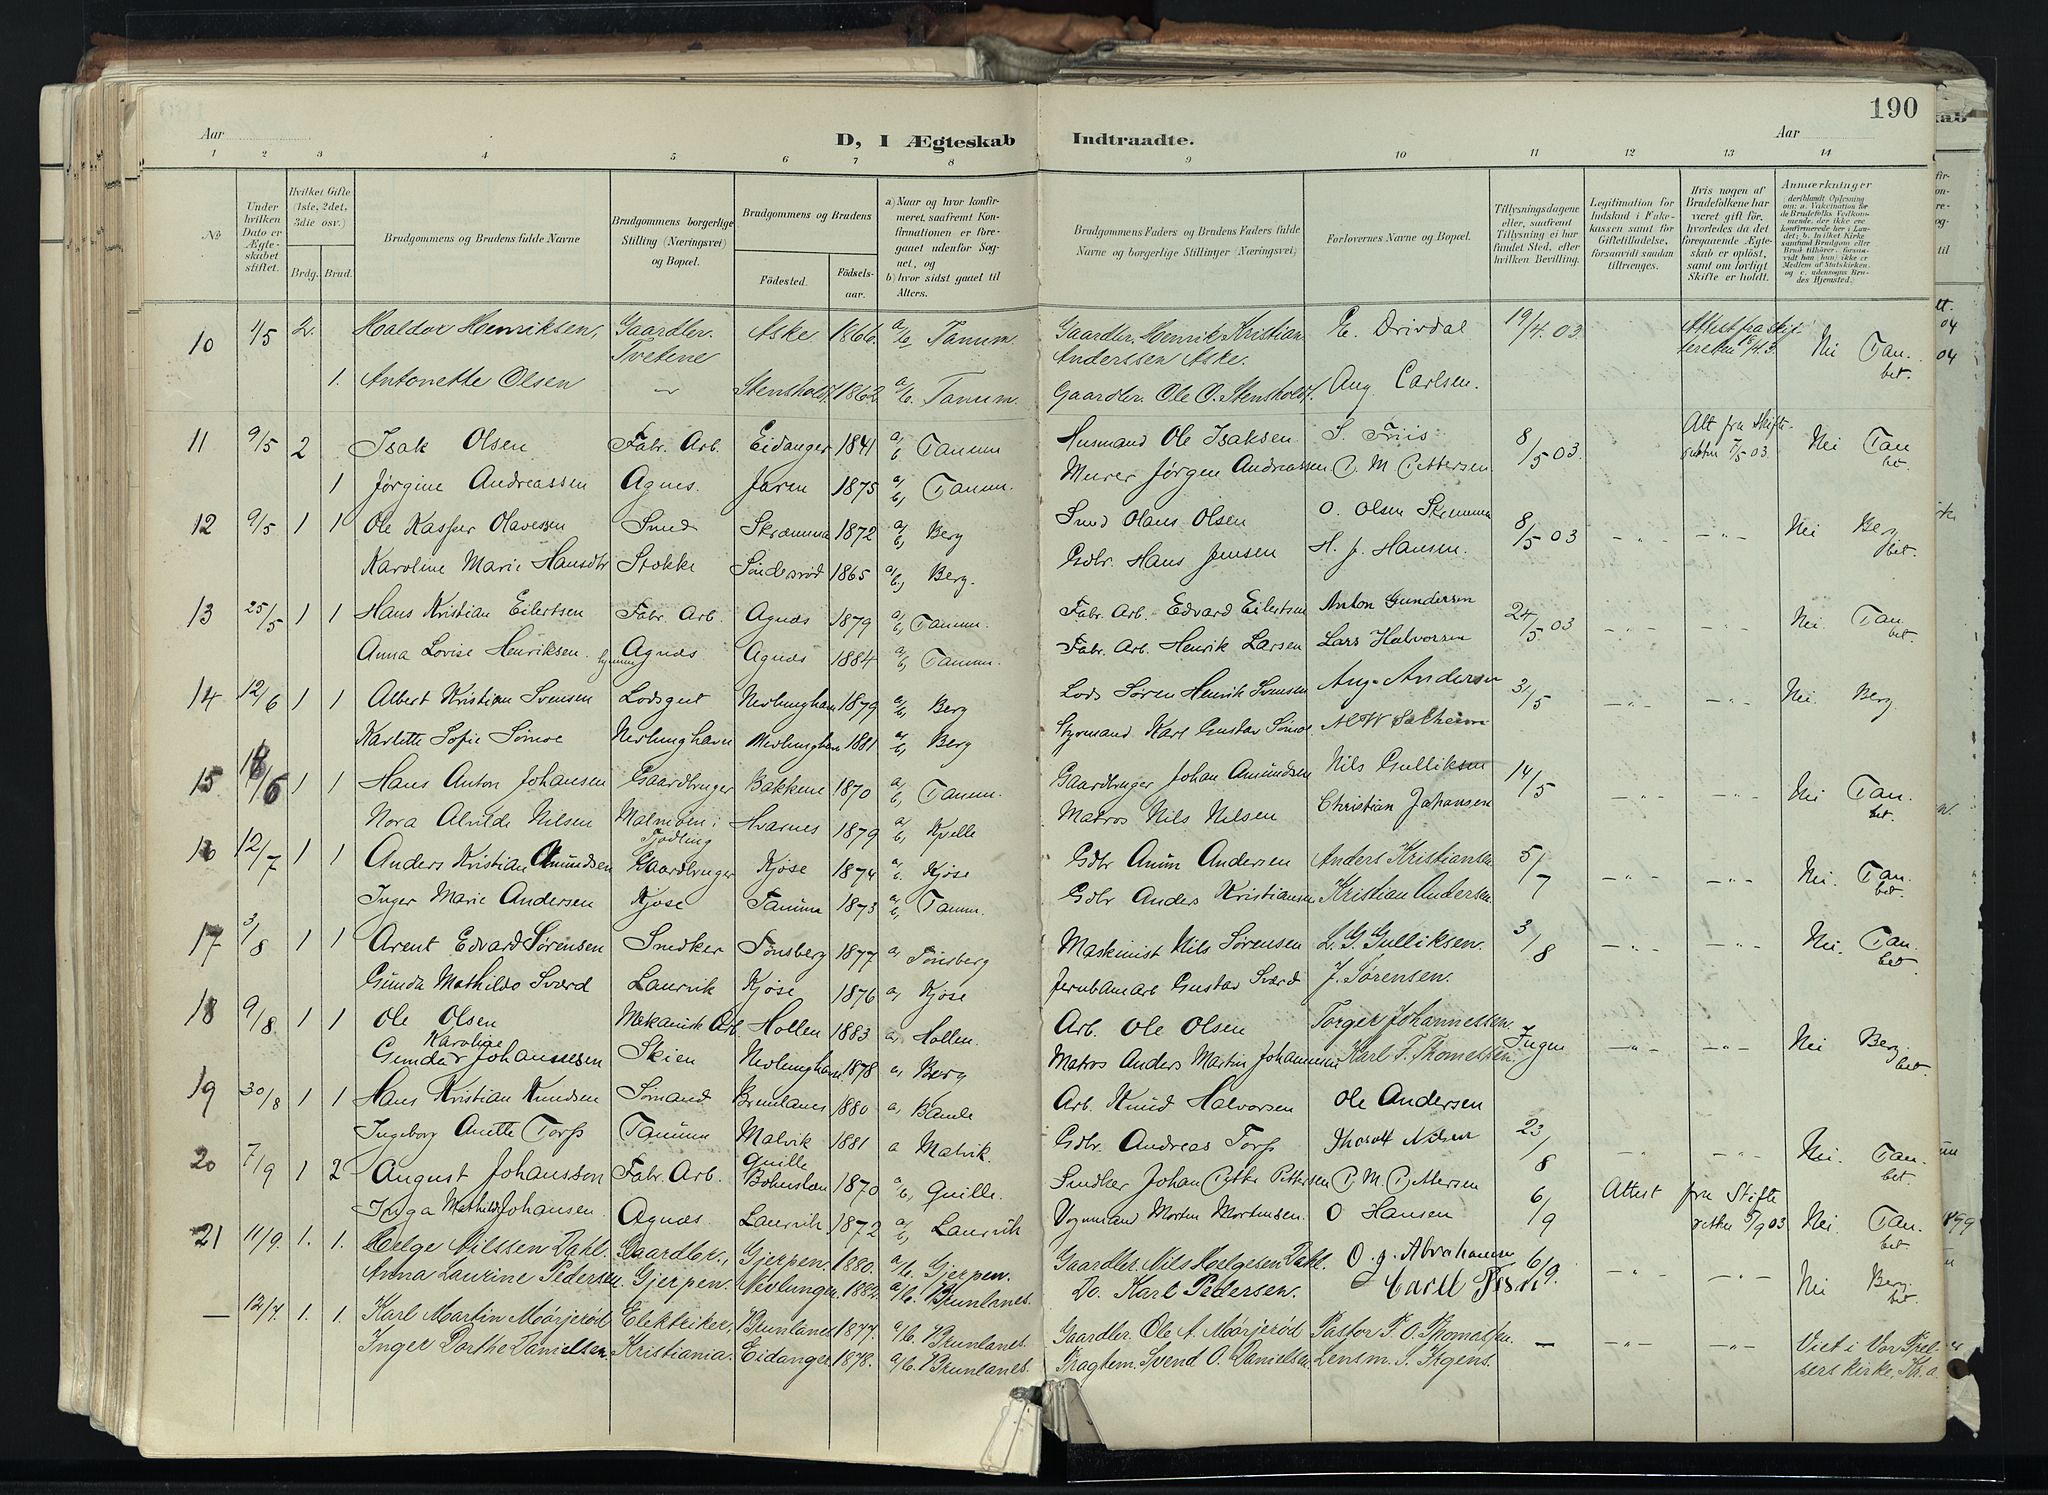 190
Aar
D, I Ægteskab Indtraadte.
Aar
1 2 3 4 5 6 7 8 9 10 11 12 13 14
№
Under hvilken Dato er Ægteskabet stiftet.
Hvilket Gifte (1ste, 2det, 3die osv.)
Brdg. Brud.
Brudgommens og Brudens fulde Navne
Brudgommens borgerlige Stilling (Næringsvei) og Bopæl.
Brudgommens og Brudens
Födested. Födselsaar.
a) Naar og hvor konfirmeret, saafremt Konfirmationen er foregaaet udenfor Sognet, og
b) hvor sidst gaaet til Alters.
Brudgommens Faders og Brudens Faders fulde Navne og borgerlige Stillinger (Næringsvei).
Forlovernes Navne og Bopæl.
Tillysningsdagene eller, saafremt Tillysning ei har fundet Sted, efter hvilken Bevilling.
Legitimation for Indskud i Fakkassen samt for Giftetilladelse, forsaavidt saadan tiltrænges.
Hvis nogen af Brudefolkene har været gift för, hvorledes da det foregaaende Ægteskab er oplöst, samt om lovligt Skifte er holdt.
Anmærkninger
10 1/5 2. Haldor Henriksen, Gaardbr. Aske 1866 a/b Tanum Gaardbr. Henrik Kristian E. Drivdal 19/4.03 Attest fra skif-
Tvetene Anderssen Aske. Nei Tan.
1. Antonette Olsen Stensholt 1862 a/b. Tanum. Gaardbr. Ole O. Stensholt. Aug. Carlsen. bet.
11 9/5 2 Isak Olsen Fabr. Arb. Eidanger 1841 a/b Tanum Husmand Ole Isaksen S. Friis 8/5 03. Att fra Skifte-
retten 7/5 03. Nei Tan bet.
1 Jørgine Andreassen Agnes. Jaren 1875 a/b, Tanum. Murer Jørgen Andreassen P. M. Pettersen
12 9/5 1 1 Ole Kasper Olavessen Smed Skræmma 1872 a/b, Berg Smed Olaus Olsen O. Olsen 8/5 03 Nei Berg bet.
Karoline Marie Hansdtr Stokke Søndersrød 1865 a/b, Berg. Gdbr. Hans Jensen H. J. Hansen.
13 25/5 1 1 Hans Kristian Eilertsen Fabr. Arb. Agnæs 1879 a/b, Tanum. Fabr. Arb. Edvard Eilertsen Anton Gundersen 24/5 03 Nei Tan. bet.
Anna Lovise Henriksen Agnæs Agnæs 1884 a/b, Tanum. Fabr. Arb. Henrik Larsen Lars Halvorsen
14 12/6 1 1 Albert Kristian Svensen Lodsgut Nevlunghavn 1879 a/b, Berg Lods Søren Henrik Svensen Aug. Andersen 31/5 Nei. Berg
Karlette Sofie Sømoe Nevlunghavn Nevlunghavn 1881 a/b, Berg Styrmand Karl Gustav Sømoe
15 18/6 1 1 Hans Anton Johansen Gaardbruger Bakkene 1870 a/b, Tanum. Gaardbruger Johan Amundsen Nils Gulliksen 14/5 Nei Tan. bet.
Nora Alvilde Nilsen Malmøen i Tjødling Hvarnes 1879 a/b, Kvelle Matros Nils Nilsen Christian Johansen
16 12/7 1 1 Anders Kristian Amundsen Gaardbruger Kjøse 1874 a/b. Kjøse Gdbr Amun Andersen Anders Kristiansen 5/7 Nei. Tan. bet
Inger Marie Andersen Kjøse Tanum 1873 a/b, Tanum. Gdbr Anders Kristiansen Kristian Andersen.
17 3/8 1 1 Arent Edvard Sørensen Snedker Tønsberg 1877 a, Tønsberg Maskinist Nils Sørensen L. G. Gulliksen. 3/8 Nei. Tan. bet.
Gunda Mathilde Sværd Laurvik Kjøse 1876 a, Kjøse Jernbanearb Gustav Sværd J. Sørensen.
18 9/8. 1 1 Ole Olsen Mekanisk Arb. Hollen 1883 a, Hollen. Arb. Ole Olsen Torger Johannessen. Ingen Nei Berg. bet.
Karoline
Gunda Johannessen Skien Nevlunghavn 1878 a, Berg Matros Anders Martin Johannessen Karl T. Thomessen.
19 30/8 1 1 Hans Kristian Knudsen Sømand Brunlanes 1880 a, Bamle Arb. Knud Halvorsen Ole Andersen
Ingeborg Anette Torp Tanum Malvik 1881 a Malvik. Gdbr. Andreas Torp Thorolf Nilsen 23/8 Nei. Tan. bet.
20 7/9 1 2 August Johansson Fabr. Arb. Quille Bohuslæn 1870 a/b, Quille. Snedker Johan Pettersen P. M. Pettersen 6/9 Attest fra Skifte
Inga Mathilde Johansen. Agnæs. Laurvik 1872 a/b, Laurvik Vognmand Morten Mortensen. O Hansen retten 5/9 03 Nei Tan. bet.
21 11/9. 1. 1. Helge Nilssen Dahl. Gaardbr., Gjerpen 1880. a/b. Gjerpen. Gaardbr. Nils Helgesen Dahl. O. J. Abrahamsen 6/9.
Anna Laurine Pedersen. Gjerpen. Nevlungen 1882. a/b. Brunlanes. Do. Karl Pedersen. Nei Berg. bet
— 12/7. 1. 1. Karl Martin Mørjerød Elektriker, Brunlanes 1877. a/b. Brunlanes. Gaardbr. Ole A. Mørjerød Pastor P. O. Thomassen. — Viet i Vor Frel-
Inger Dorthe Danielsen. Kristiania. Eidanger 1878. a/b. Brunlanes. Svend O. Danielsen Lensm. S. Irgens. sers kirke, Kr.a.